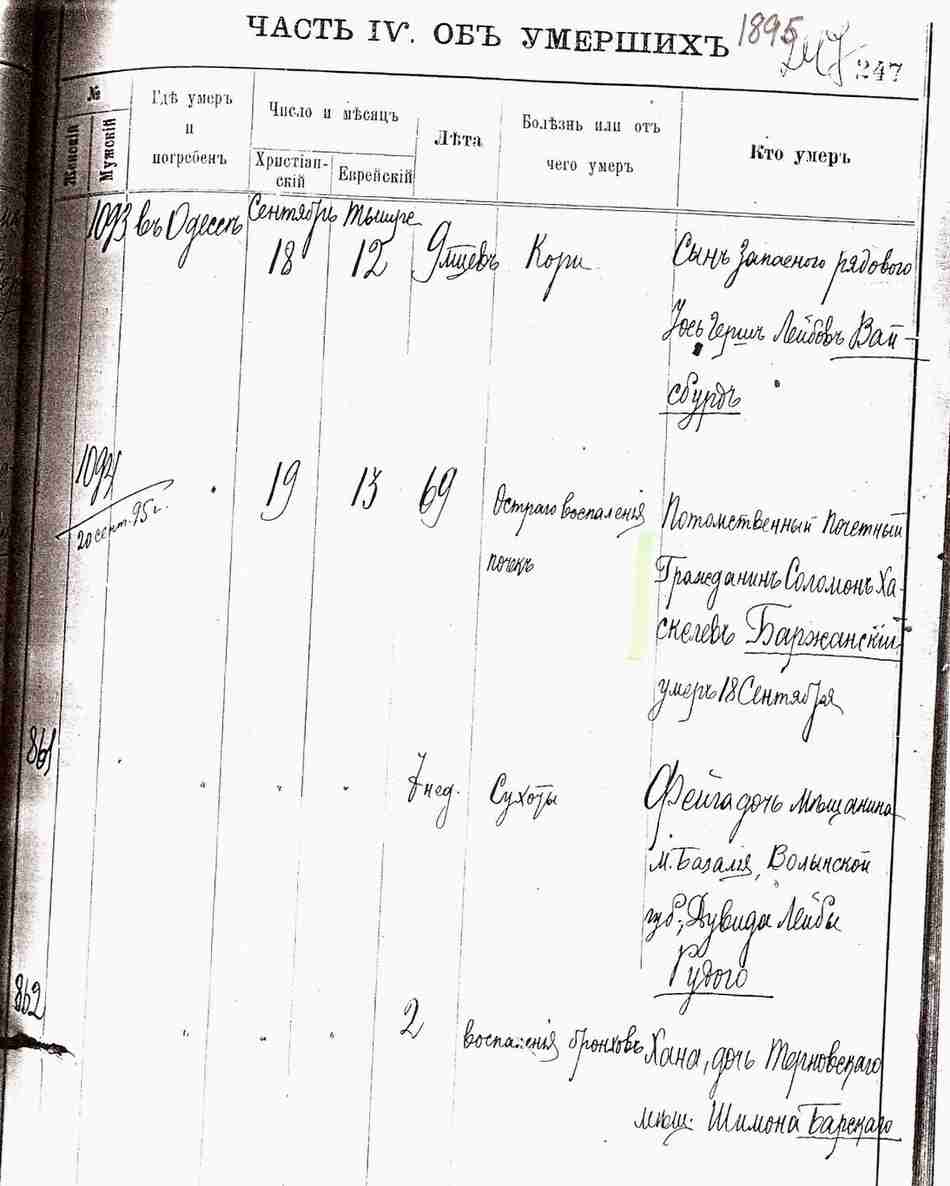 ЧАСТЬ IV. ОБЪ УМЕРШИХЪ
1895
247
№
Женскій
Мужскій
Гдѣ умеръ
и
погребенъ
Число и мѣсяцъ
Христіан-
скій
Еврейскій
Лѣта
Болѣзнь или отъ
чего умеръ
Кто умеръ
1093 въ Одессѣ Сентябрь Тышре
18 12 9 мцевъ Кори Сынъ запасного рядового
Іось Гершъ Лейбовъ Вай-
сбурдъ
1094
20 сент. 95 г.
19 13 69 Остраго воспаленія
почекъ
Потомственный почетный
Гражданинъ Соломонъ Ха-
скелевъ Баржанскій
умеръ 18 Сентября
861 " " " 7 нед. Сухоты Фейга дочь мѣщанина
м. Базалія, Волынской
губ., Дувида Лейбы
Рудого
862 " " " 2 воспаленія бронховъ Хана, дочь Терновскаго
мѣщ. Шимона Барскаго